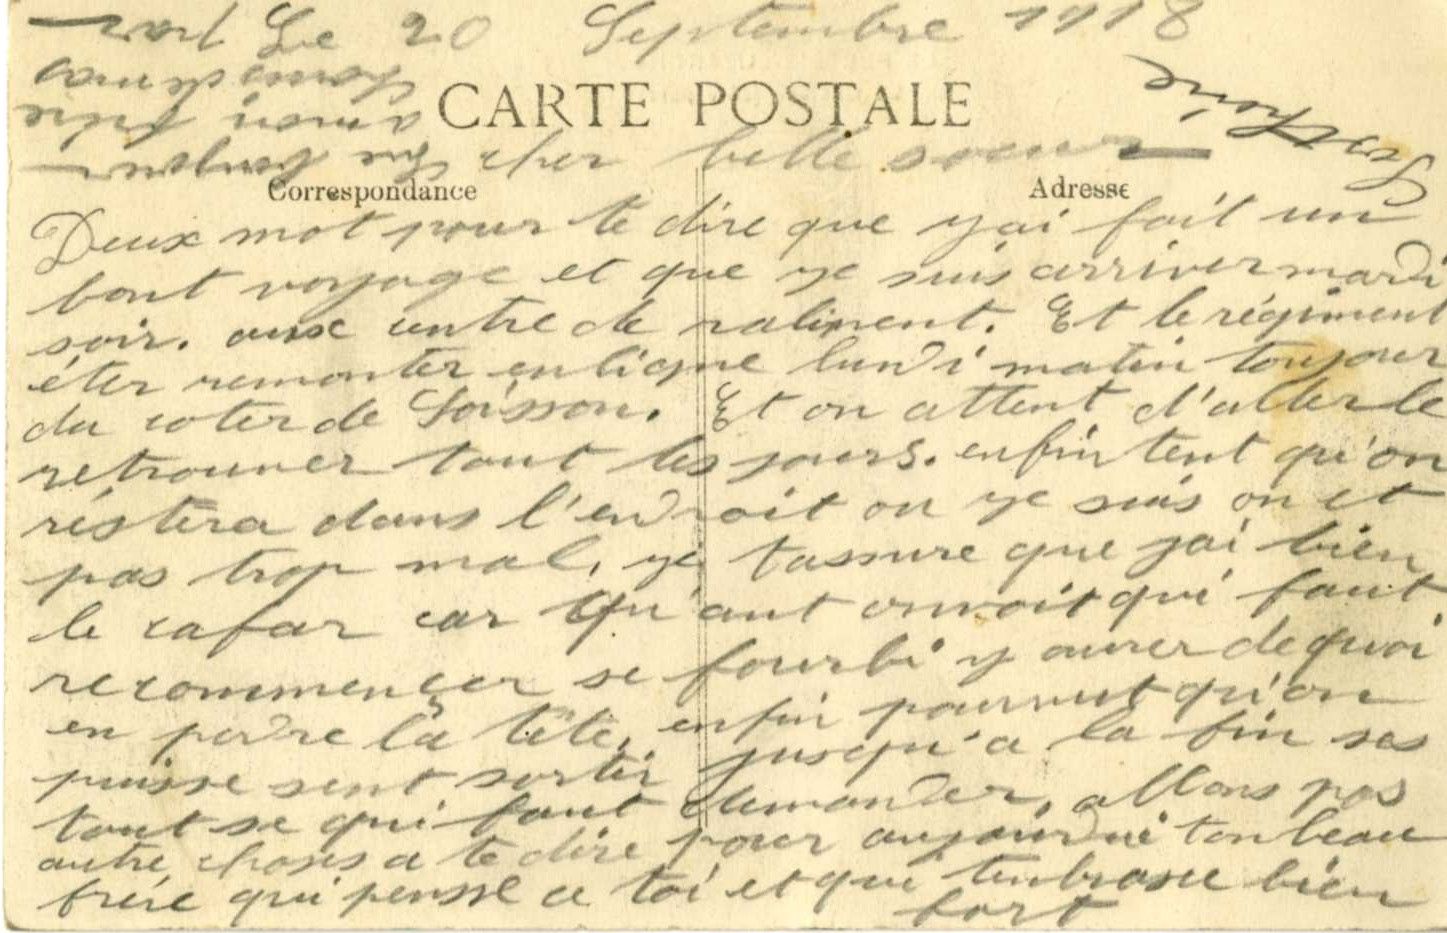 Le 20 Septembre 1918
CARTE POSTALE
cher belle soeur
Correspondance
Adresse
Deux mot pour te dire que j'ai fait un
bont voyage et que je suis arriver mardi
soir. aux centre de raliment. Et le régiment
éter remonter en ligne lundi matin toujour
du coter de Soisson. Et on attent d'aller le
retrouver tout les jours. enfin tent qu'on
réstera dans l'endroit ou je suis on et
pas trop mal, je tassure que jai bien
le cafar car qu'ant on voit qui faut
recommençer se fourbi y aurer de quoi
en perdre la tête, enfin pourvut qu'on
puisse sent sortir jusqu'a la fin ses
tout se qui faut demander, allons pas
autre choses a te dire pour aujourdui ton beau
frére qui pensse a toi et que tenbrasse bien
fort
bonjour
a mon frère